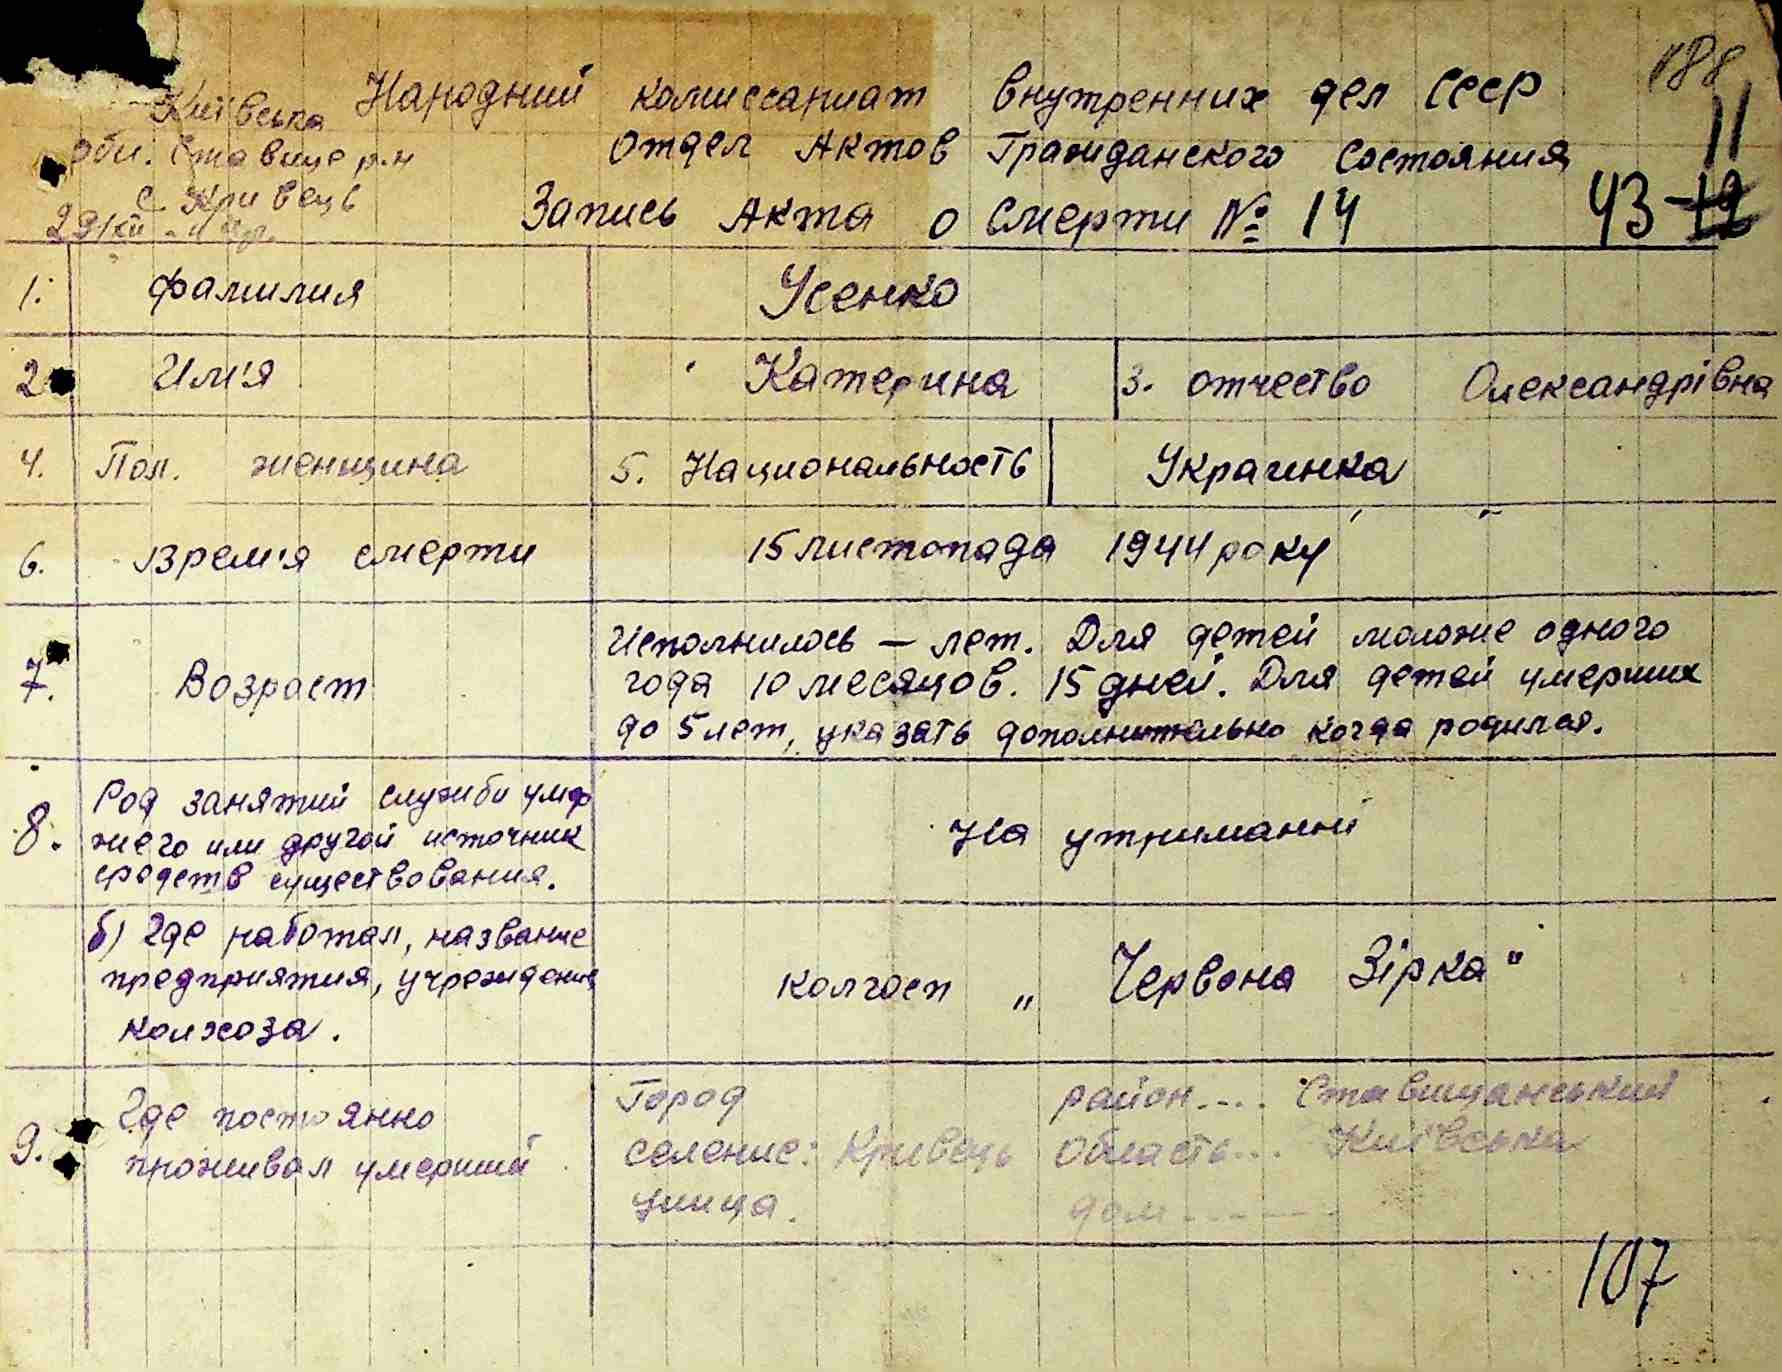 188
Київська
обл. Ставище р-н
с. Кривець
Народний комиссариат внутренних дел СССР
Отдел Актов Гражданского Состояния
11
Запись Акта о смерти № 14
43-12
1. фамилия Усенко
2. Им'я Катерина 3. отчество Олександрівна
4. Пол. женщина 5. Национальность Украинка
6. Врем'я смерти 15 листопада 1944 року
7. Возраст
Исполнилось — лет. Для детей моложе одного
года 10 месяцов. 15 дней. Для детей умерших
до 5 лет, указать дополнительно когда родился.
8. Род занятий служби умер
шего или другой источник
средств существования.
На утриманні
б) Где работал, название
предприятия, учреждения
колхоза.
колгосп „ Червона Зірка"
9. Где постоянно
проживал умерший
Город район.... Ставищанський
селение: Кривець область... Київська
улица. дом-------
107